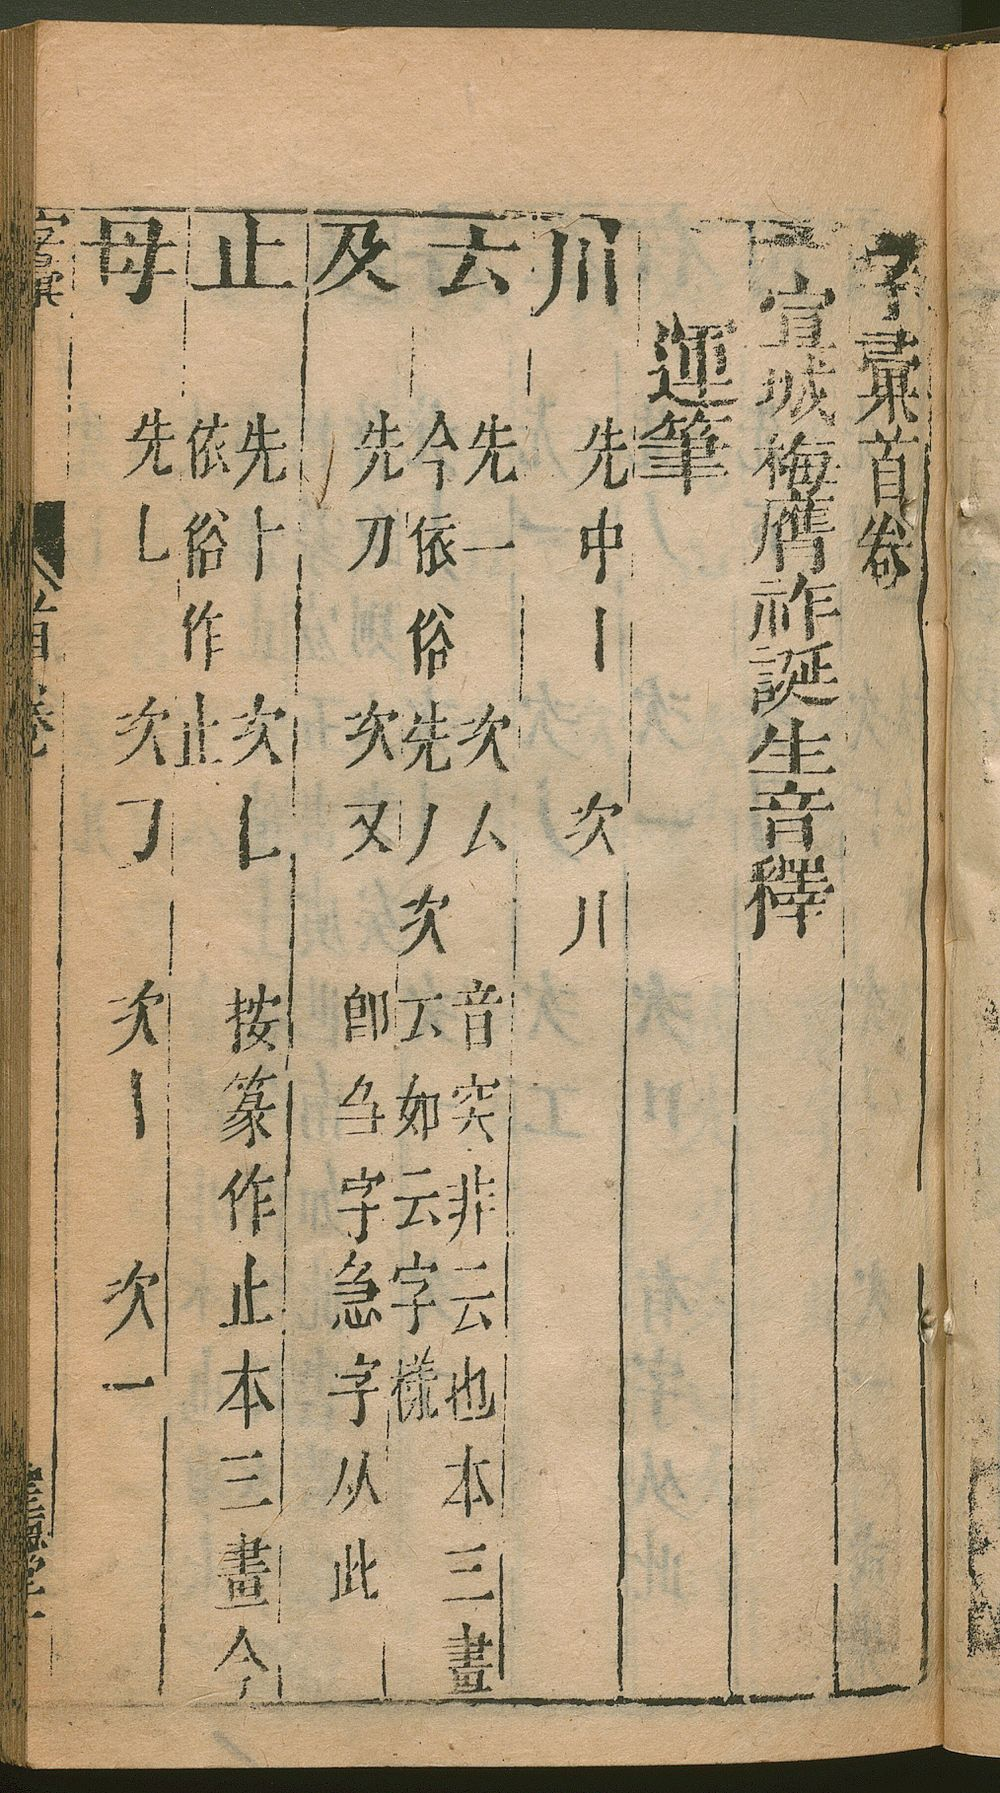 字彙首卷
宣城梅膺祚誕生音釋
運筆
川 先中丨 次川
𠫓 先一 次厶 音突非云也本三畫
今依俗先丿次𠫓如云字樣
及 先刀 次又 卽刍字急字从此
止 先⺊ 次𠃊 按篆作止本三畫今
依俗作止
母 先𠃊 次㇆ 次丨 次一
字彙
首卷